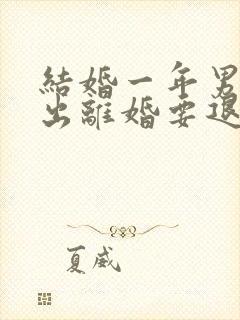 結婚一年男
出離婚要退
夏威